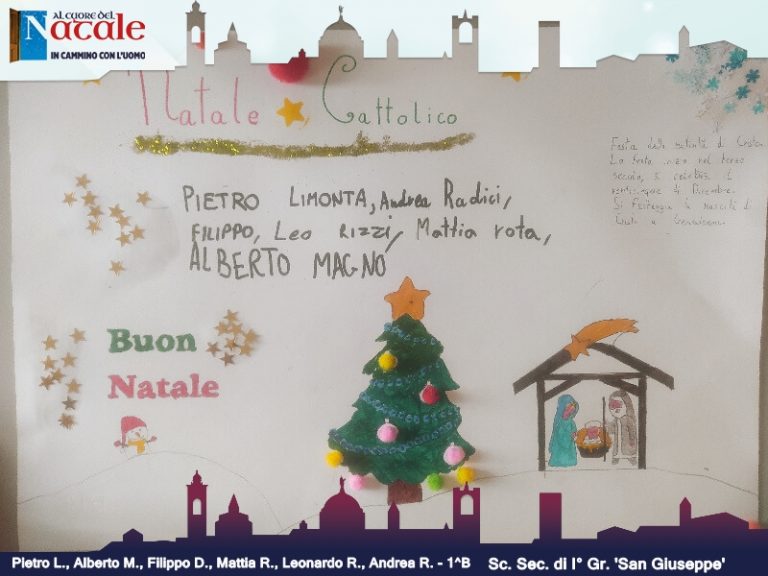 AL CUORE DEL
Natale
IN CAMMINO CON L'UOMO
Natale Cattolico
Festa della natività di Cristo.
La festa nel terzo
secolo, si celebra il
venticinque di Dicembre.
Si Festeggia la nascita di
PIETRO LIMONTA, Andrea Radici,
FILIPPO, Leo RIZZI, Mattia rota,
ALBERTO MAGNO
Buon
Natale
Pietro L., Alberto M., Filippo D., Mattia R., Leonardo R., Andrea R. - 1^B Sc. Sec. di I° Gr. 'San Giuseppe'